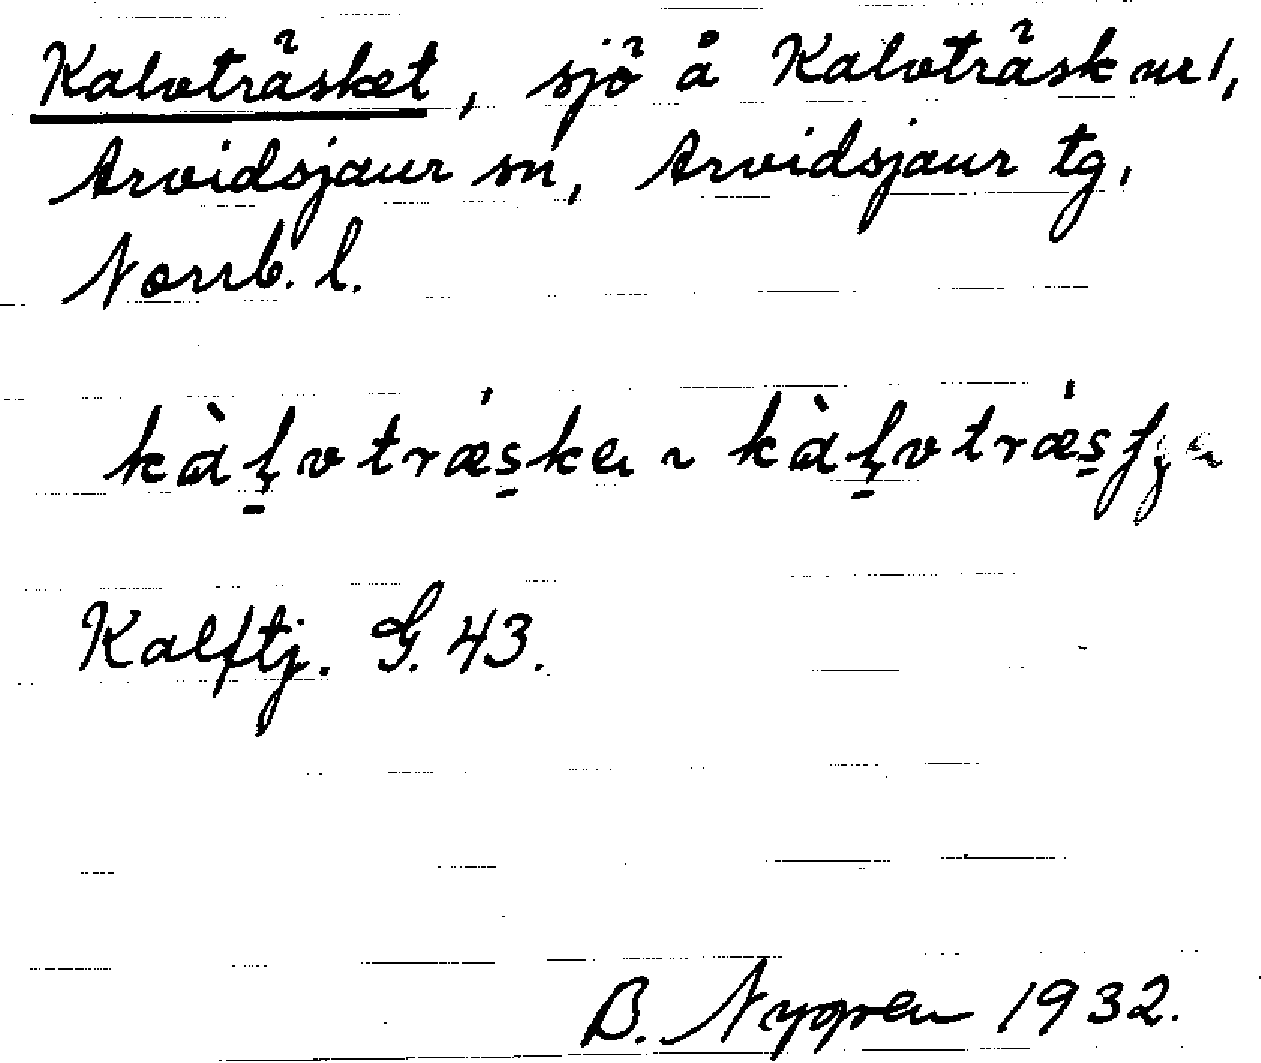 Kalvträsket, sjö å Kalvträsk nr 1,
Arvidsjaur sn, Arvidsjaur tg,
Norrb. l.
kàḷvtræ̍ske ~ kàḷvtræ̍s
Kalftj. G. 43.
B. Nygren 1932.